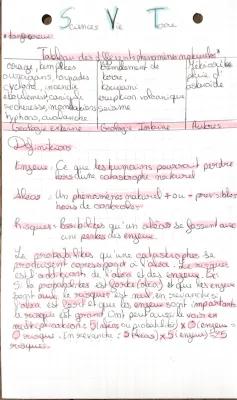 Sciences Vie Terre
Tableau des différents phénomènes naturels
orage, tempêtes
ouragans, tornades
cyclone, incendie
sécheresse, inondations
typhons, avalanche
tremblement de
terre,
éruption volcanique
séisme
Météorite
pluie d'
Géologie externe
Géologie Interne
Autres
Définitions
Enjeux: Ce que les humains pourrait perdre
lors d'une catastrophe naturel
Aléas: Un phénomènes naturel + ou - prévisibles
Risques: Possibilités qu'un aléas se fassent avec
une pertes des enjeux.
La probabilités qu'une catastrophes se
produisent correspond à l'aléa. Le risques
est de l'aléa et des enjeux. Ex:
Si la probabilités est forte (aléa) et que les enjeux
sont nuls, le risques est nul, en revanche si
l'aléa est fort et que les enjeux sont importants
le risques est grand. Ont peut aussi le voir en
multiplications: 5 (aléas ou probabilités) x 0 (enjeux) =
0 risques. En revanche: 5 (aléas) x 5 (enjeux) = 25
risques.